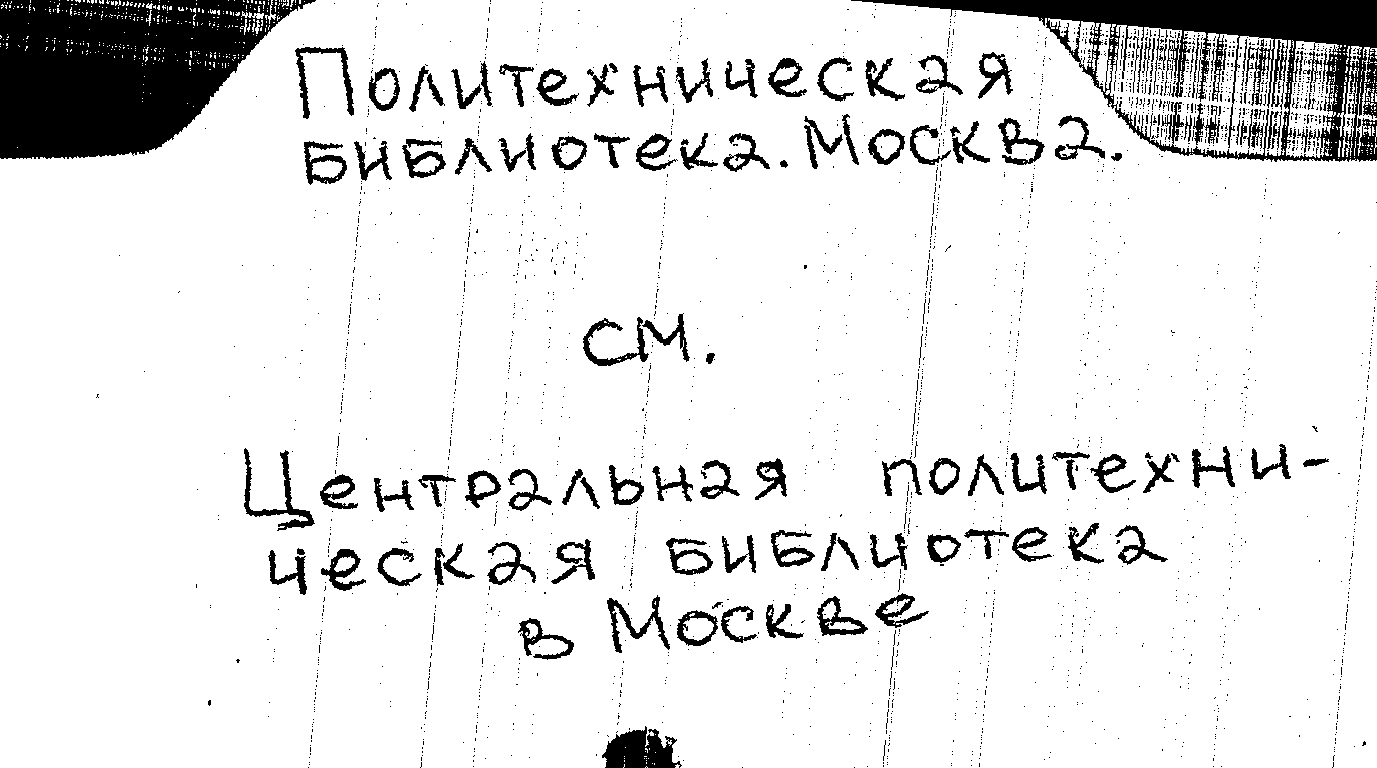 Политехническая
библиотека. Москва.
см.
Центральная политехни-
ческая библиотека
в Москве